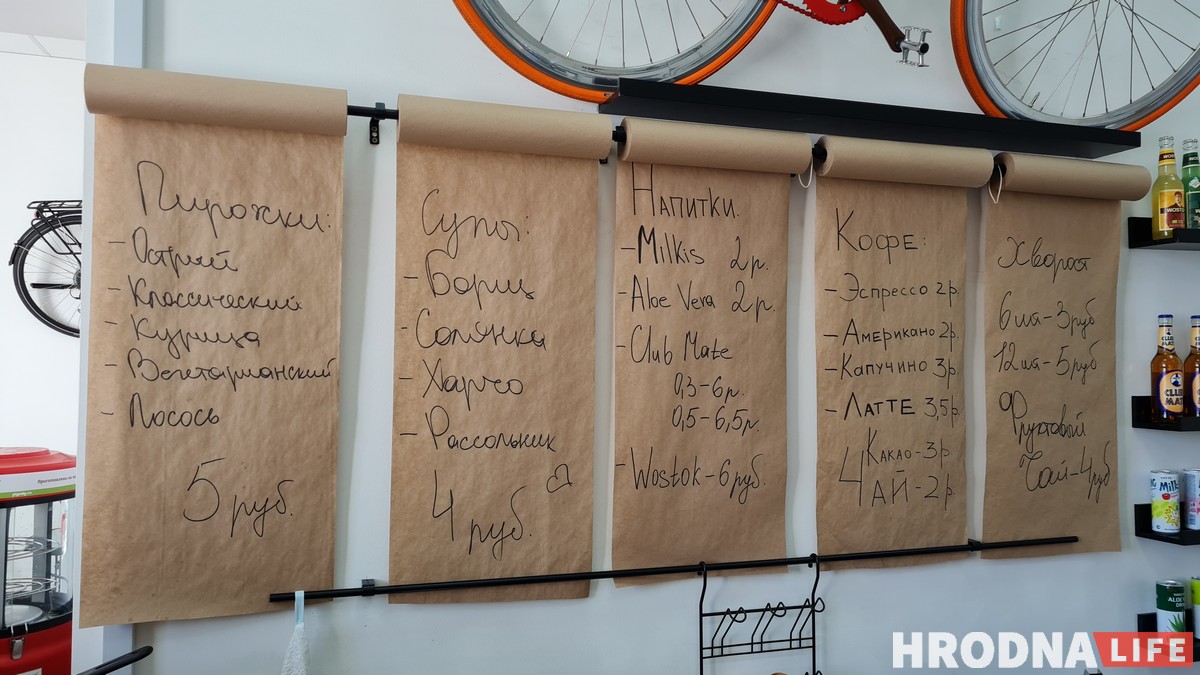 Пирожки:
- Острый
- Классический
- Курица
- Вегетарианский
- Лосось
5 руб.
Супы:
- Борщ
- Солянка
- Харчо
- Рассольник
4 руб.
Напитки.
- Milkis 2р.
- Aloe Vera 2р.
- Club Mate
0,3-6р.
0,5-6,5р.
- Wostok-6руб.
Кофе:
- Эспрессо 2р.
- Американо 2р.
- Капучино 3р.
- Латте 3,5р.
Какао-3р
Чай-2р
Хворост
6шт-3руб
12шт-5руб
Фруктовый
Чай-4руб
CLUB
MATE
Milk
ALOE
HRODNA LIFE